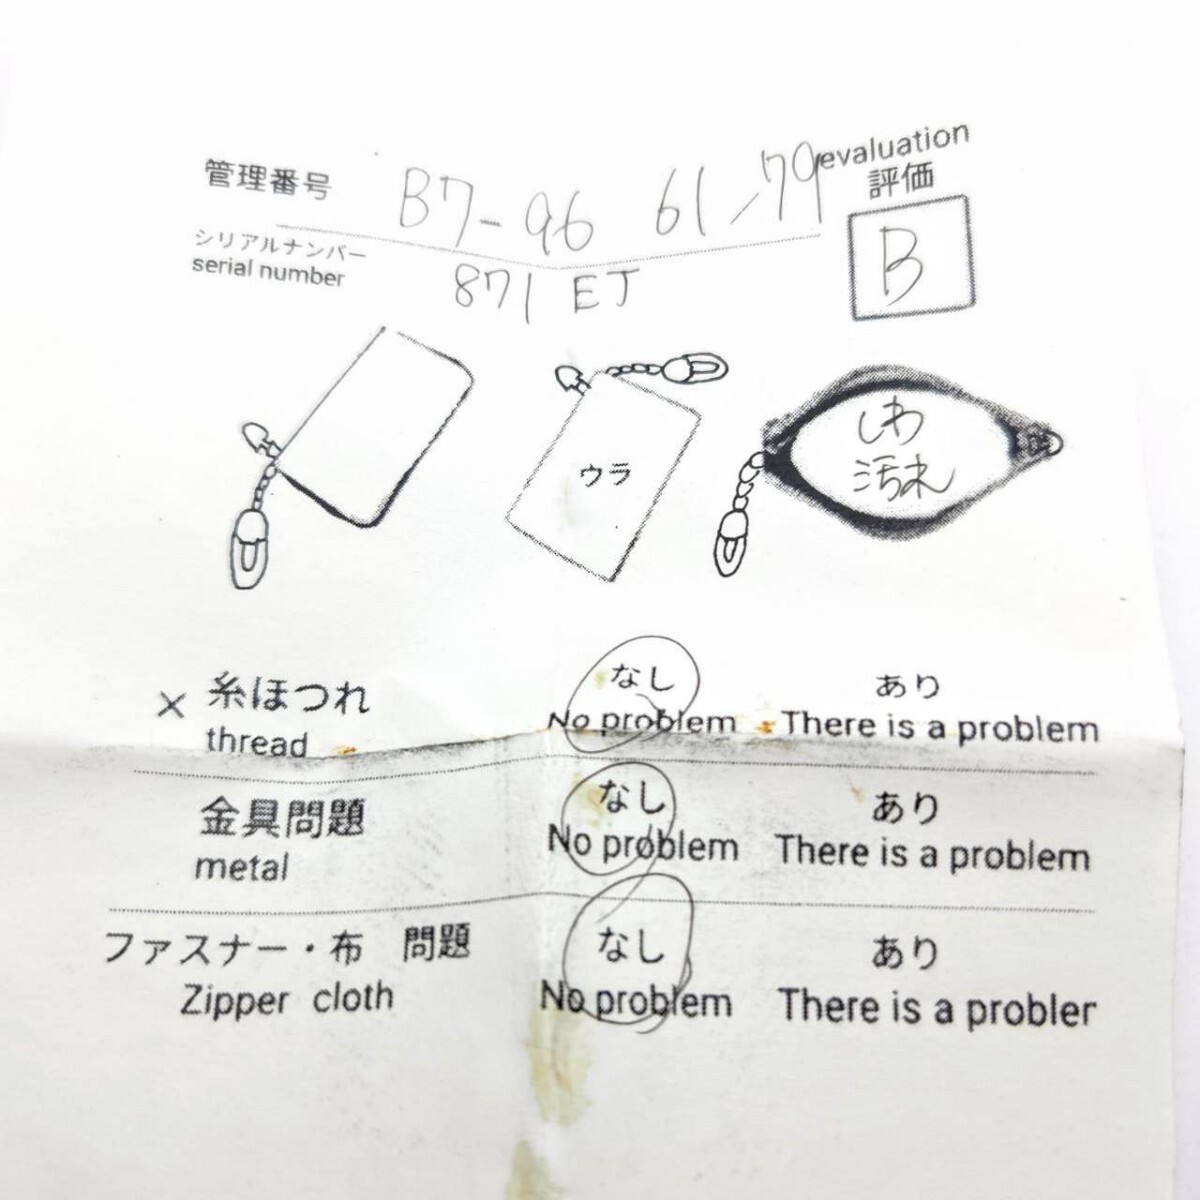 管理番号 B7-96 61-79 evaluation
評価
シリアルナンバー
serial number 871 EJ B
ウラ
しわ
汚れ
× 糸ほつれ なし あり
thread No problem There is a problem
金具問題 なし あり
metal No problem There is a problem
ファスナー・布 問題 なし あり
Zipper cloth No problem There is a probler